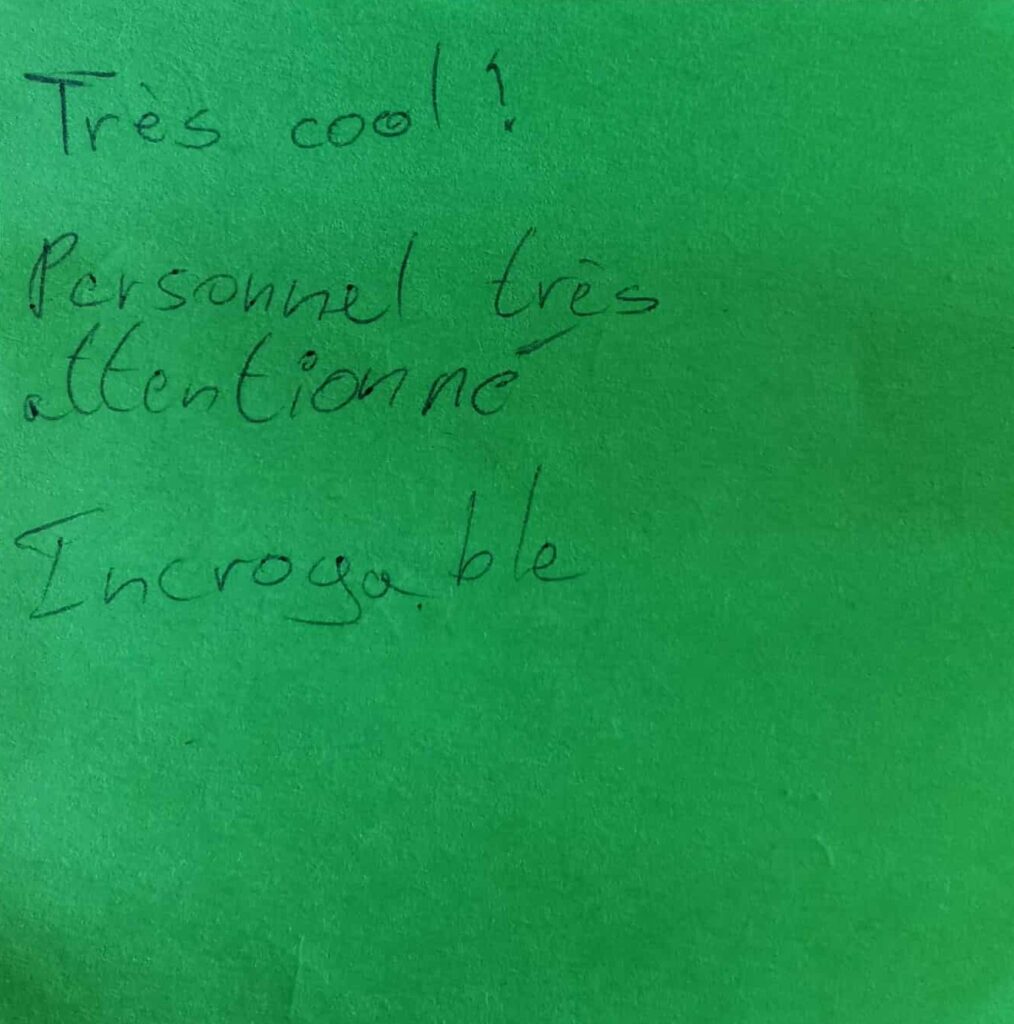 Très cool !
Personnel très
attentionné
Incroyable